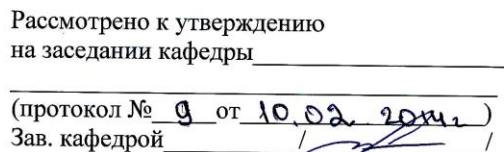 Рассмотрено к утверждению
на заседании кафедры
(протокол № 9 от 10.02. )
Зав. кафедрой / /